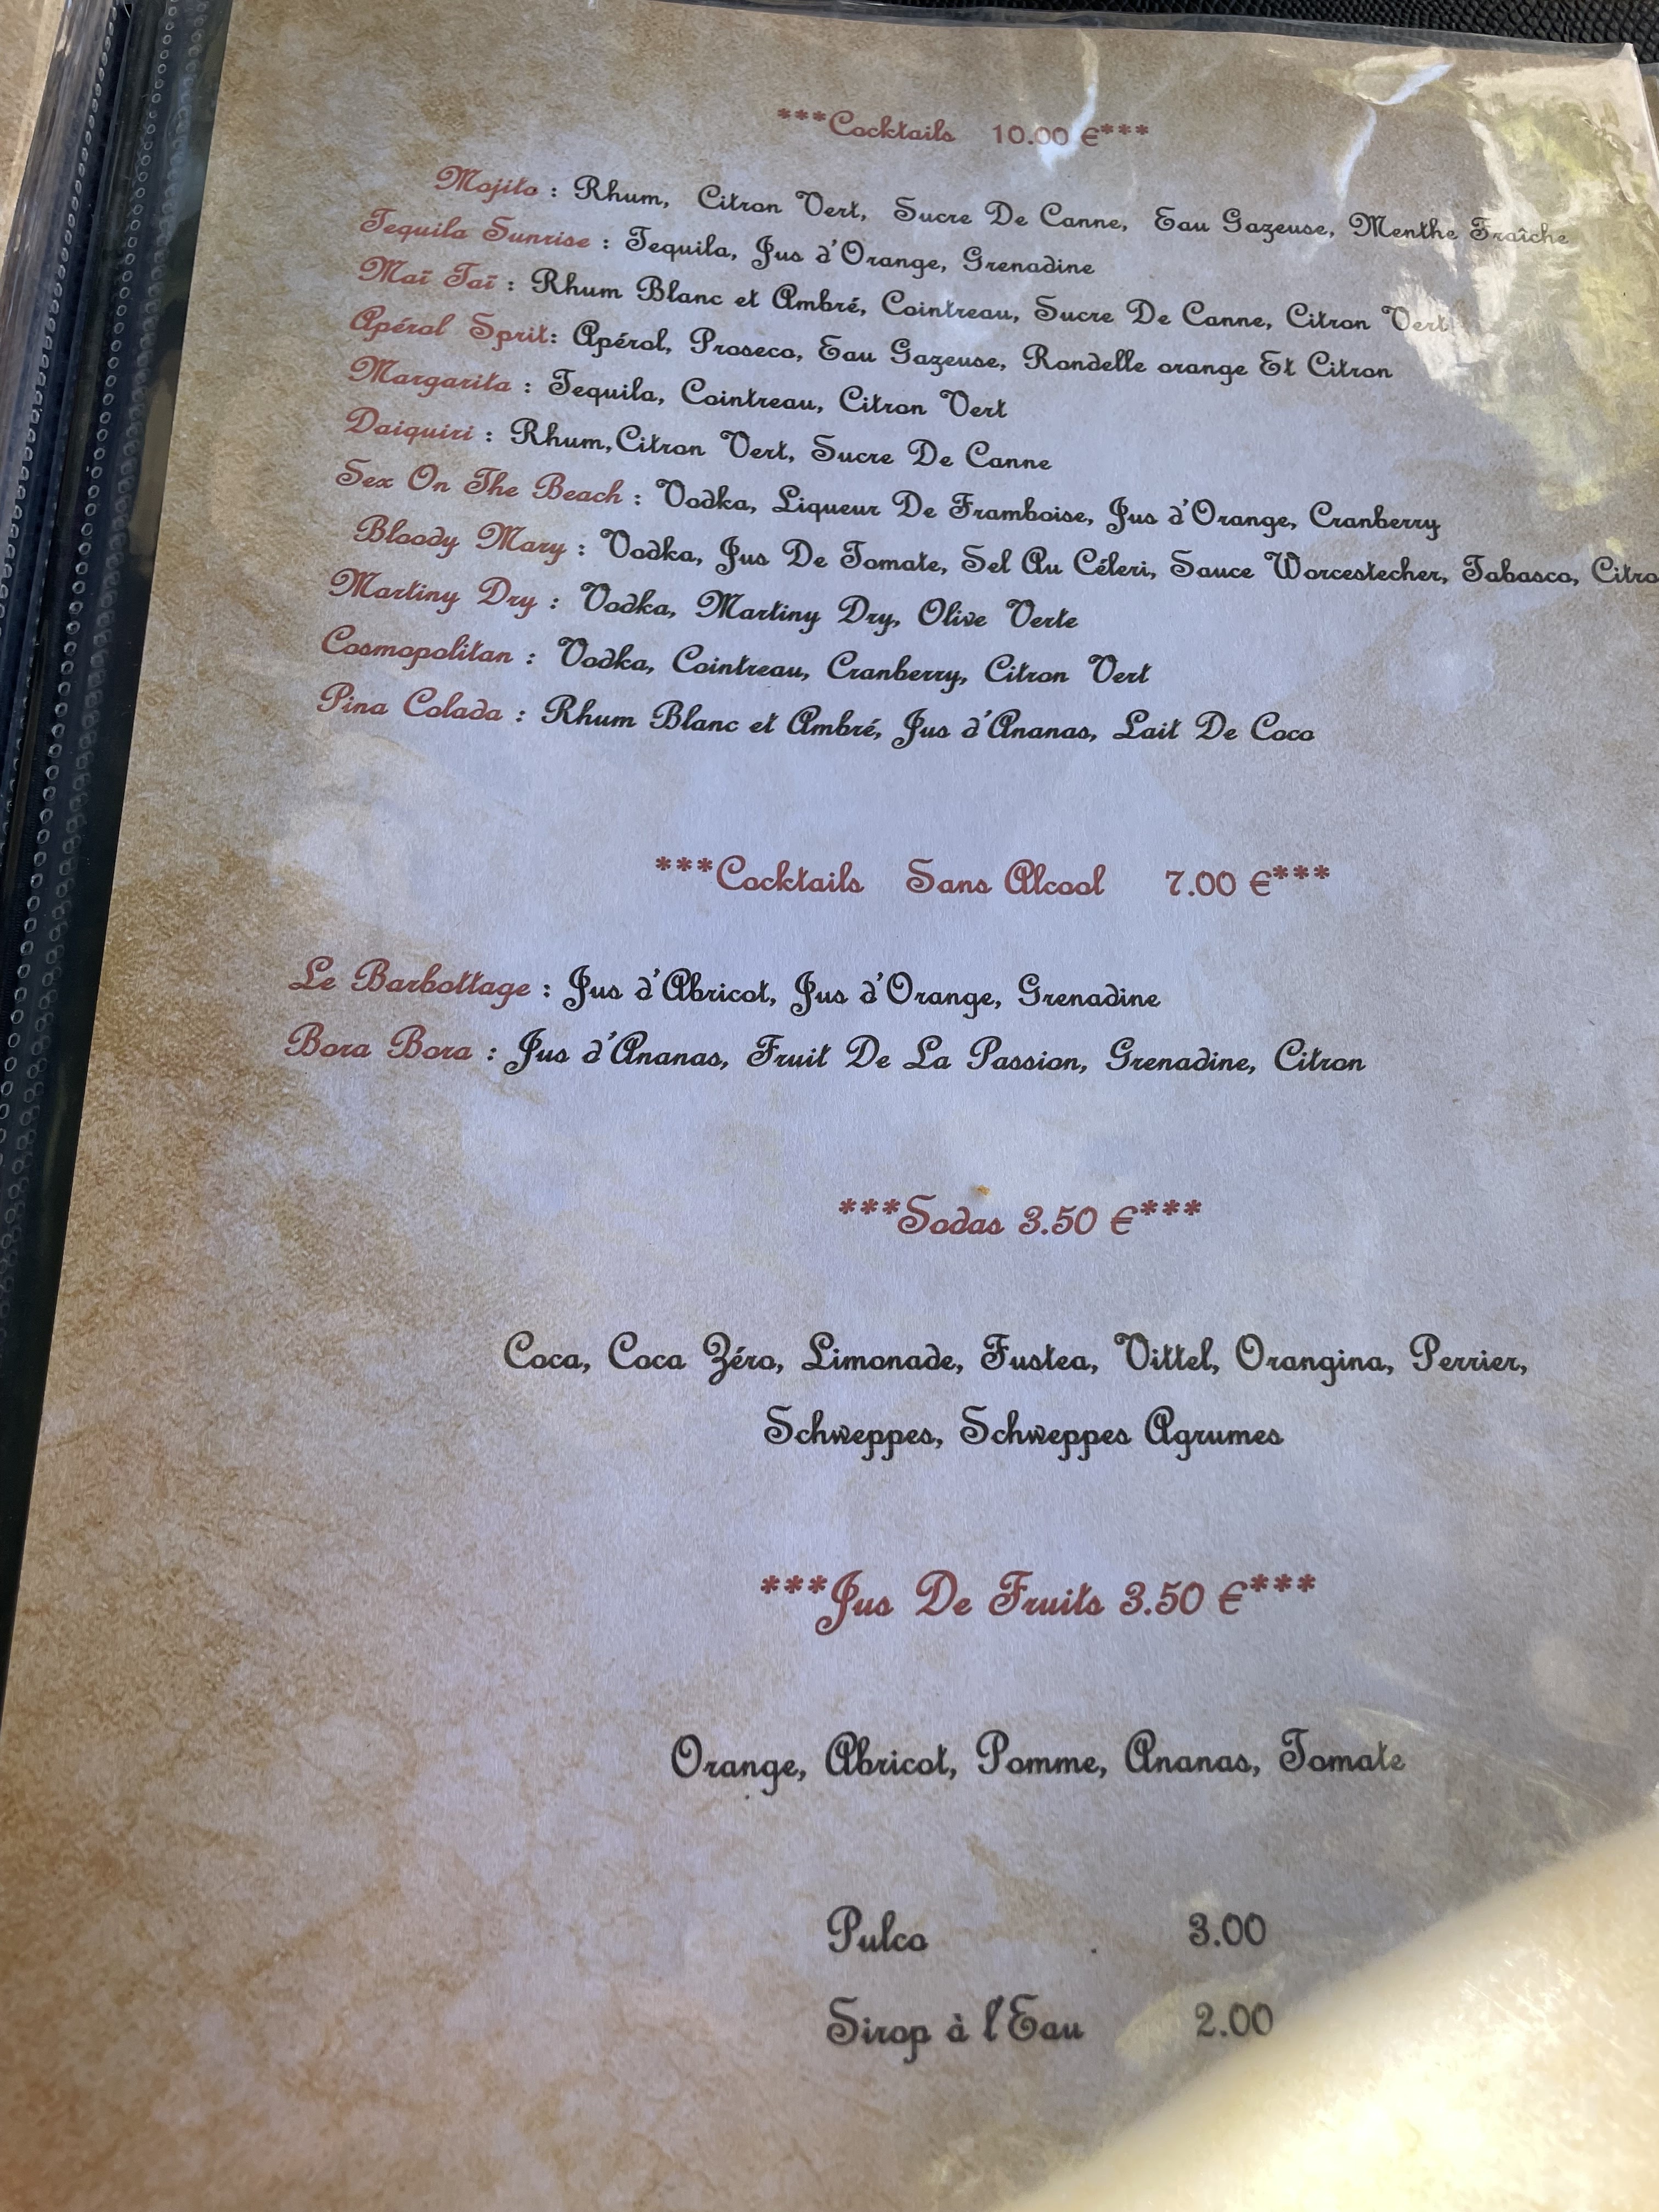 ***Cocktails 10.00 €***
Mojito : Rhum, Citron Vert, Sucre De Canne, Eau Gazeuse, Menthe Fraîche
Tequila Sunrise : Tequila, Jus d'Orange, Grenadine
Maï Taï : Rhum Blanc et Ambré, Cointreau, Sucre De Canne, Citron Vert
Apérol Sprit: Apérol, Proseco, Eau Gazeuse, Rondelle orange Et Citron
Margarita : Tequila, Cointreau, Citron Vert
Daiquiri : Rhum,Citron Vert, Sucre De Canne
Sex On The Beach : Vodka, Liqueur De Framboise, Jus d'Orange, Cranberry
Bloody Mary : Vodka, Jus De Tomate, Sel Au Céleri, Sauce Worcestecher, Tabasco, Citro
Martiny Dry : Vodka, Martiny Dry, Olive Verte
Cosmopolitan : Vodka, Cointreau, Cranberry, Citron Vert
Pina Colada : Rhum Blanc et Ambré, Jus d'Ananas, Lait De Coco
***Cocktails Sans Alcool 7.00 €***
Le Barbottage : Jus d'Abricot, Jus d'Orange, Grenadine
Bora Bora : Jus d'Ananas, Fruit De La Passion, Grenadine, Citron
***Sodas 3.50 €***
Coca, Coca Zéro, Limonade, Fustea, Vittel, Orangina, Perrier,
Schweppes, Schweppes Agrumes
***Jus De Fruits 3.50 €***
Orange, Abricot, Pomme, Ananas, Tomate
Pulco 3.00
Sirop à l'Eau 2.00